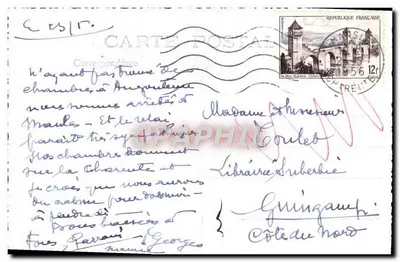 le 23/5.
CARTE POSTALE
REPUBLIQUE FRANÇAISE
12F
1956
n'ayant pas trouvé des
chambres à Angoulême
nous nous sommes arrêtés à
Mansle - et le relai
paraît très sympathique
Nos chambres donnent
sur la Charente et
je crois que nous aurons
du calme pour dormir -
à jeudi
Bons baisers à
tous
Georges
Madame et Monsieur
Toulet
Librairie Subervie
Guingamp
Côte du Nord